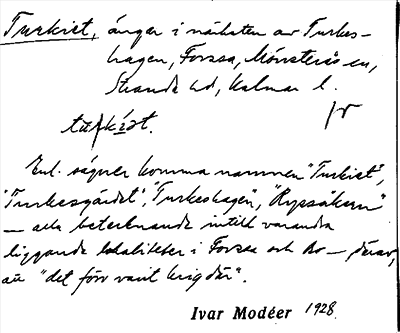 Turkiet, ängar i närheten av Turkes-
hagen, Forssa, Mönsterås sn,
Stranda hd, Kalmar l.
Enl. sägner komma namnen "Turkiet",
"Turkesgärdet", "Turkeshagen", "Ryssåkern"
— alla betecknande intill varandra
liggande lokaliteter i Forssa och Bo — därav,
att "det förr varit krig där".
Ivar Modéer 1928